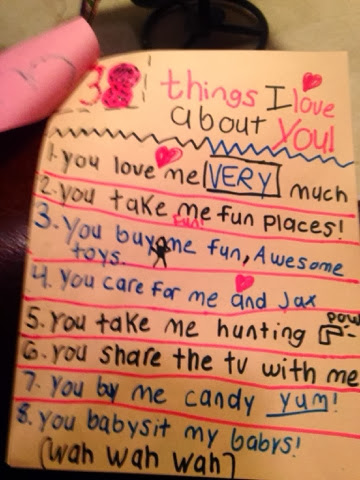 38 things I love
about You!
1. you love me VERY much
2. you take me fun places!
fun!
3. You buy me fun, Awesome
toys.
4. you care for me and Jax
5. you take me hunting pow
6. you share the tv with me
7. you by me candy yum!
8. you babysit my babys!
(wah wah wah)